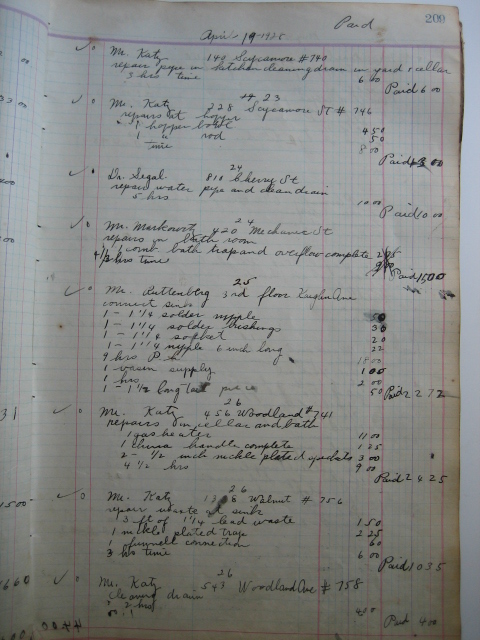 Paid 209
April 19 1925
Mr. Katz 140 Sycamore # 740
repair pipe in kitchen cleaning drain in yard & cellar
3 hrs time 6 00
Paid 6 00
23
Mr. Katz 228 Sycamore St # 746
repairs at hopper
1 hopper bowl 4 50
1 " rod 50
time 8 00
Paid 13 00
24
Dr. Segal 810 Cherry St
repair water pipe and clean drain
5 hrs 10 00
Paid 10 00
24
Mr. Markowitz 420 Mechanic St
repairs in bath room
1 comb. bath trap and overflow complete
4 1/2 hrs time 9 00
Paid
25
Mr. Ruttenberg 3rd floor Kaighn Ave
connect sink
1 - 1 1/4 solder nipple
1 - 1 1/4 solder bushings 30
1 - 1 1/4 socket 20
1 - 1 1/4 nipple 6 inch long 22
9 hrs P. 18 00
1 basin supply 1 00
1 hrs 2 00
1 - 1 1/2 long 50
Paid 2 2 72
26
Mr. Katz 456 Woodland # 741
repairs in cellar and bath
1 gas heater 11 00
1 china handle complete 1 25
2 - 1/2 inch nickle plated 3 00
4 1/2 hrs 9 00
Paid 24 25
26
Mr. Katz Walnut # 756
repair waste at sink
3 ft of 1 1/4 lead waste 1 50
1 nickle plated trap 2 25
1 funnell connection 60
3 hrs time 6 00
Paid 10 35
26
Mr. Katz 543 Woodland Ave # 758
cleaning drain
2 hrs 4 00
Paid 4 00